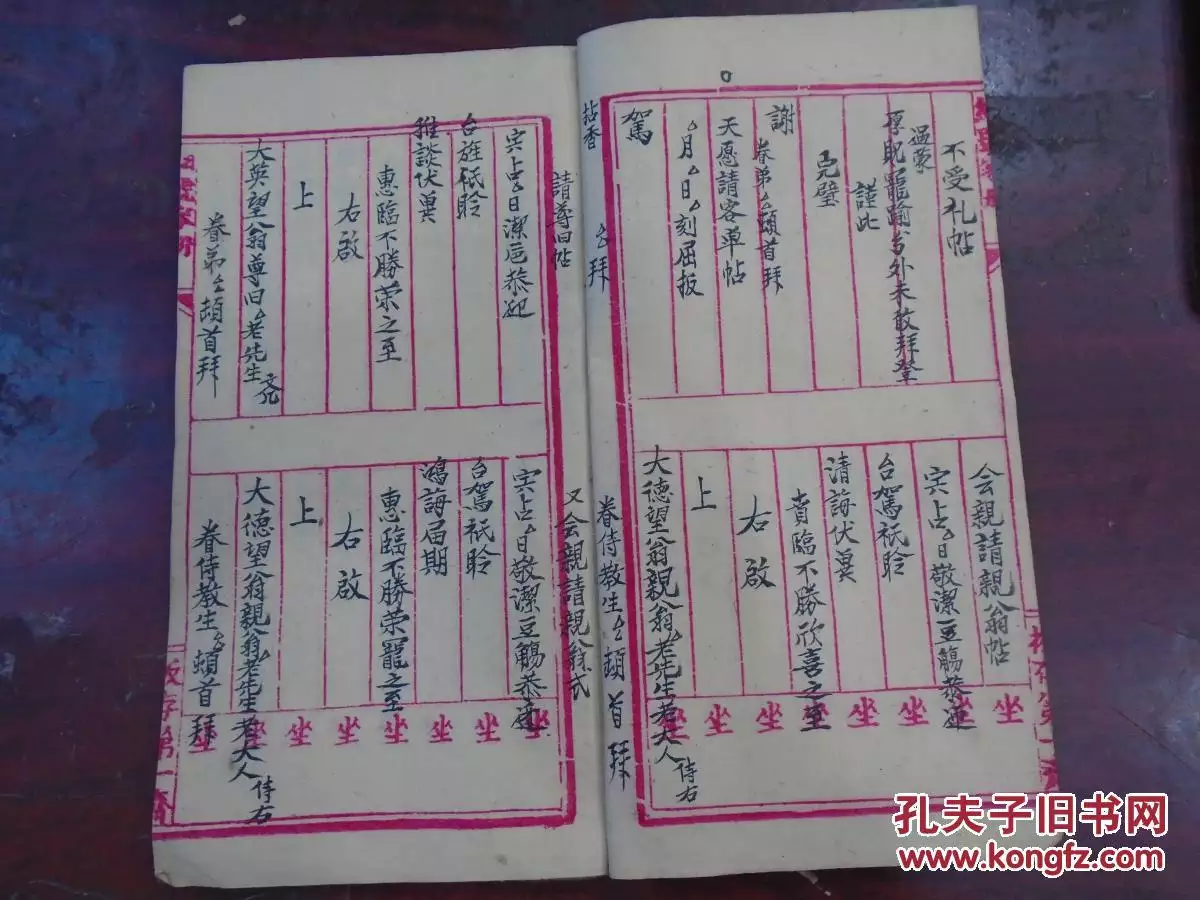 不受礼帖
温蒙
厚貺寵踰分外未敢拜登
謹此
完璧
謝
眷弟厶頓首拜
天愿請客单帖
厶月厶日厶刻屈扳
駕
拈香
厶拜
会親請親翁帖
宍占厶日敬潔豆觴恭迎
台駕祇聆
清誨伏兾
賁臨不勝欣喜之至
右啟
上
大德望翁親翁厶老先生老大人
侍右
眷侍教生厶頓首拜
請尊旧帖
宍占厶日潔巵恭迎
台旌祇聆
雅談伏兾
惠臨不勝荣之至
右啟
上
大英望翁尊旧厶老先生
文几
眷弟厶頓首拜
又会親請親翁式
宍占厶日敬潔豆觴恭迎
台駕祇聆
鴻誨届期
惠臨不勝荣寵之至
右啟
上
大德望翁親翁厶老先生老大人
侍右
眷侍教生厶頓首拜
坐 坐 坐 坐 坐 坐 坐 坐
坐 坐 坐 坐 坐 坐 坐 坐
孔夫子旧书网
www.kongfz.com